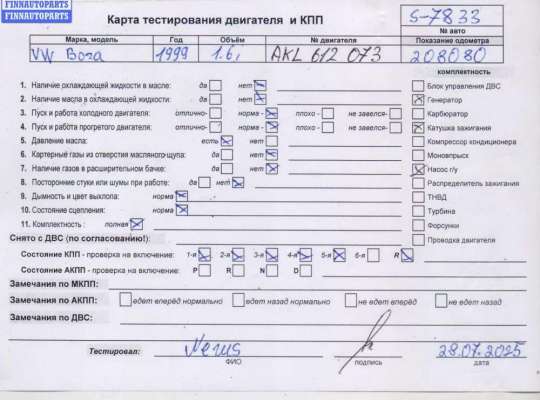 FINNAUTOPARTS
FINNAUTOPARTS
Карта тестирования двигателя и КПП
S-7833
№ авто
Марка, модель Год Объём № двигателя Показание одометра
VW Bora 1999 1.6i AKL 612 073 208080
комплектность
1. Наличие охлаждающей жидкости в масле: да нет Блок управления ДВС
2. Наличие масла в охлаждающей жидкости: да нет Генератор
3. Пуск и работа холодного двигателя: отлично- норма - плохо - не завелся- Карбюратор
4. Пуск и работа прогретого двигателя: отлично- норма - плохо - не завелся- Катушка зажигания
5. Давление масла: есть нет Компрессор кондиционера
6. Картерный газы из отверстия масляного-щупа: да нет Моновпрыск
7. Наличие газов в расширительном бачке: да нет Насос г/у
8. Посторонние стуки или шумы при работе: да нет Распределитель зажигания
9. Дымность и цвет выхлопа: норма ТНВД
10. Состояние сцепления: норма Турбина
11. Комплектность : полная Форсунки
Снято с ДВС (по согласованию!): Проводка двигателя
Состояние КПП - проверка на включение: 1-я 2-я 3-я 4-я 5-я 6-я R
Состояние АКПП - проверка на включение: P R N D
Замечания по МКПП:
Замечания по АКПП: едет вперёд нормально едет назад нормально не едет вперёд не едет назад
Замечания по ДВС:
Тестировал: 28.07.2025
ФИО подпись дата